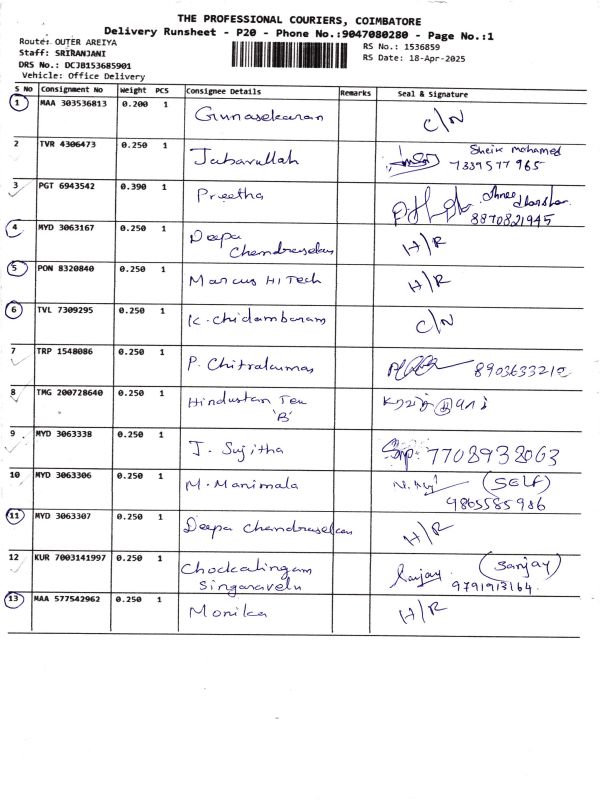 THE PROFESSIONAL COURIERS, COIMBATORE
Delivery Runsheet - P20 - Phone No.:9047080280 - Page No.:1
Route: OUTER AREIYA
Staff: SRIRANJANI
DRS No.: DCJB153685901
Vehicle: Office Delivery
RS No.: 1536859
RS Date: 18-Apr-2025
S No Consignment No Weight PCS Consignee Details Remarks Seal & Signature
1 MAA 303536813 0.200 1 Gunasekaran C/N
2 TVR 4306473 0.250 1 Jabarullah Sheik mohamed
7339577965
3 PGT 6943542 0.390 1 Preetha
8870821945
4 MYD 3063167 0.250 1 Deepa H/R
Chandrasekar
5 PON 8320840 0.250 1 Marcus Hi Tech H/R
6 TVL 7309295 0.250 1 K. Chidambaram C/N
7 TRP 1548086 0.250 1 P. Chitrakumar
8 TMG 200728640 0.250 1 Hindustan Tex
'B'
9 MYD 3063338 0.250 1 J. Sujitha 7708938063
10 MYD 3063306 0.250 1 M. Manimala (SELF)
9865585986
11 MYD 3063307 0.250 1 Deepa Chandrasekar H/R
12 KUR 7003141997 0.250 1 Chockalingam Sanjay (Sanjay)
Singaravelu 9791913164
13 MAA 577542962 0.250 1 Monika H/R